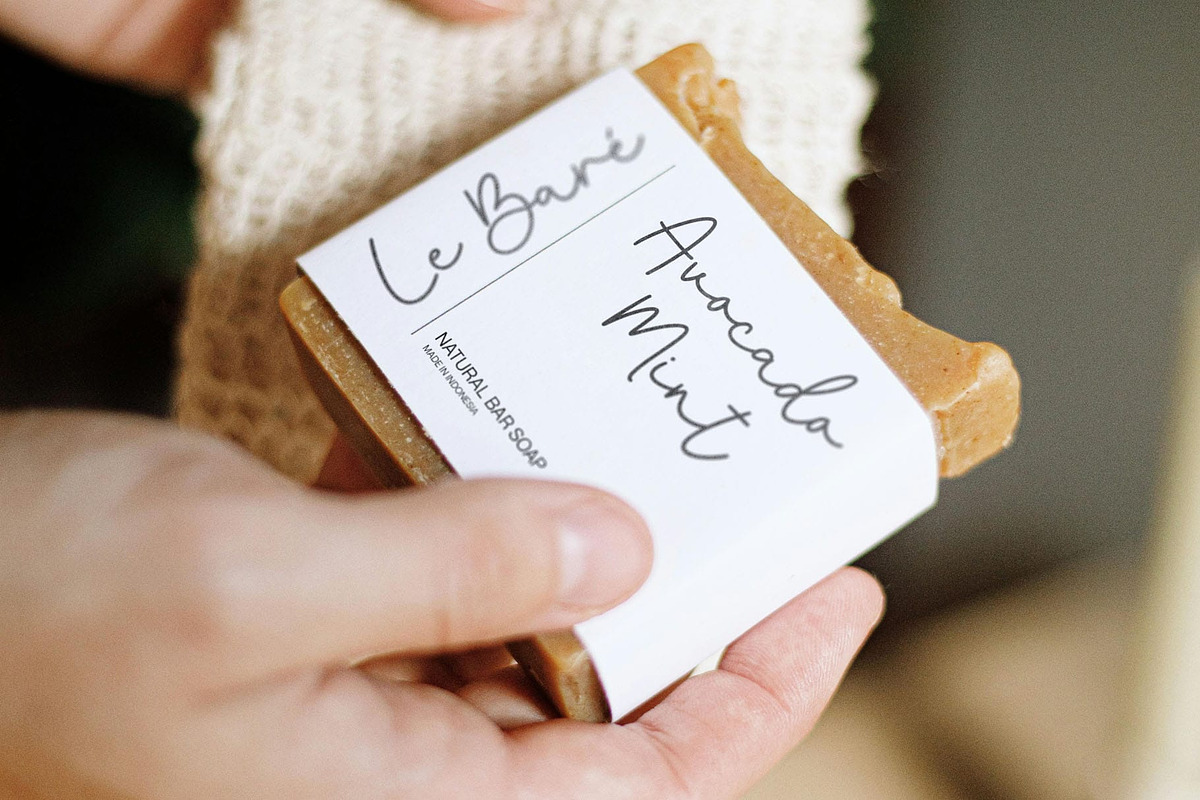 Le Baré
Avocada
Mint
NATURAL BAR SOAP
MADE IN INDONESIA